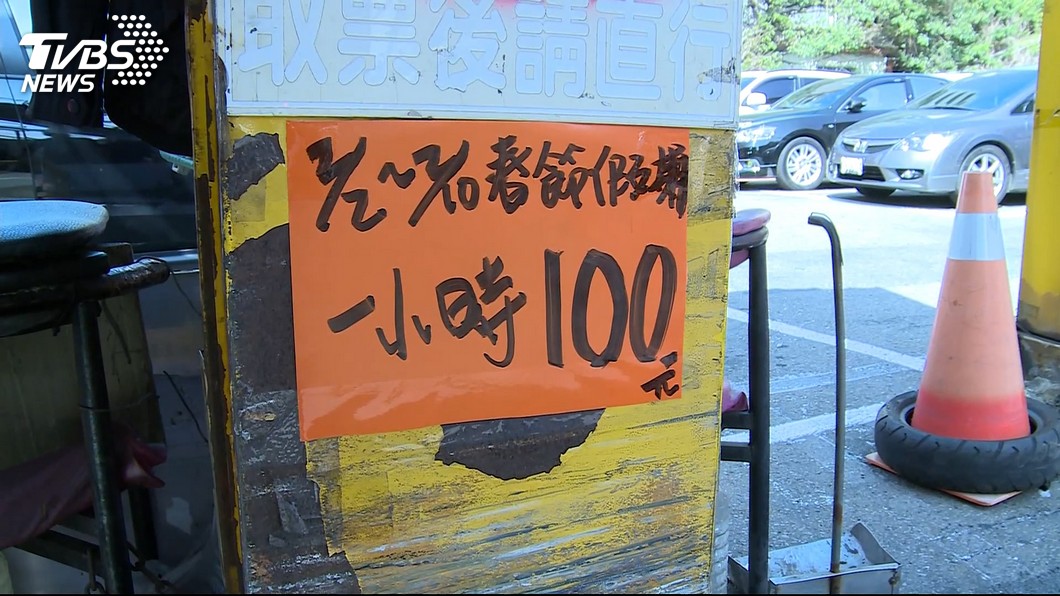 TVBS
NEWS
取票後請直行
2/2~2/10春節假期
一小時100元